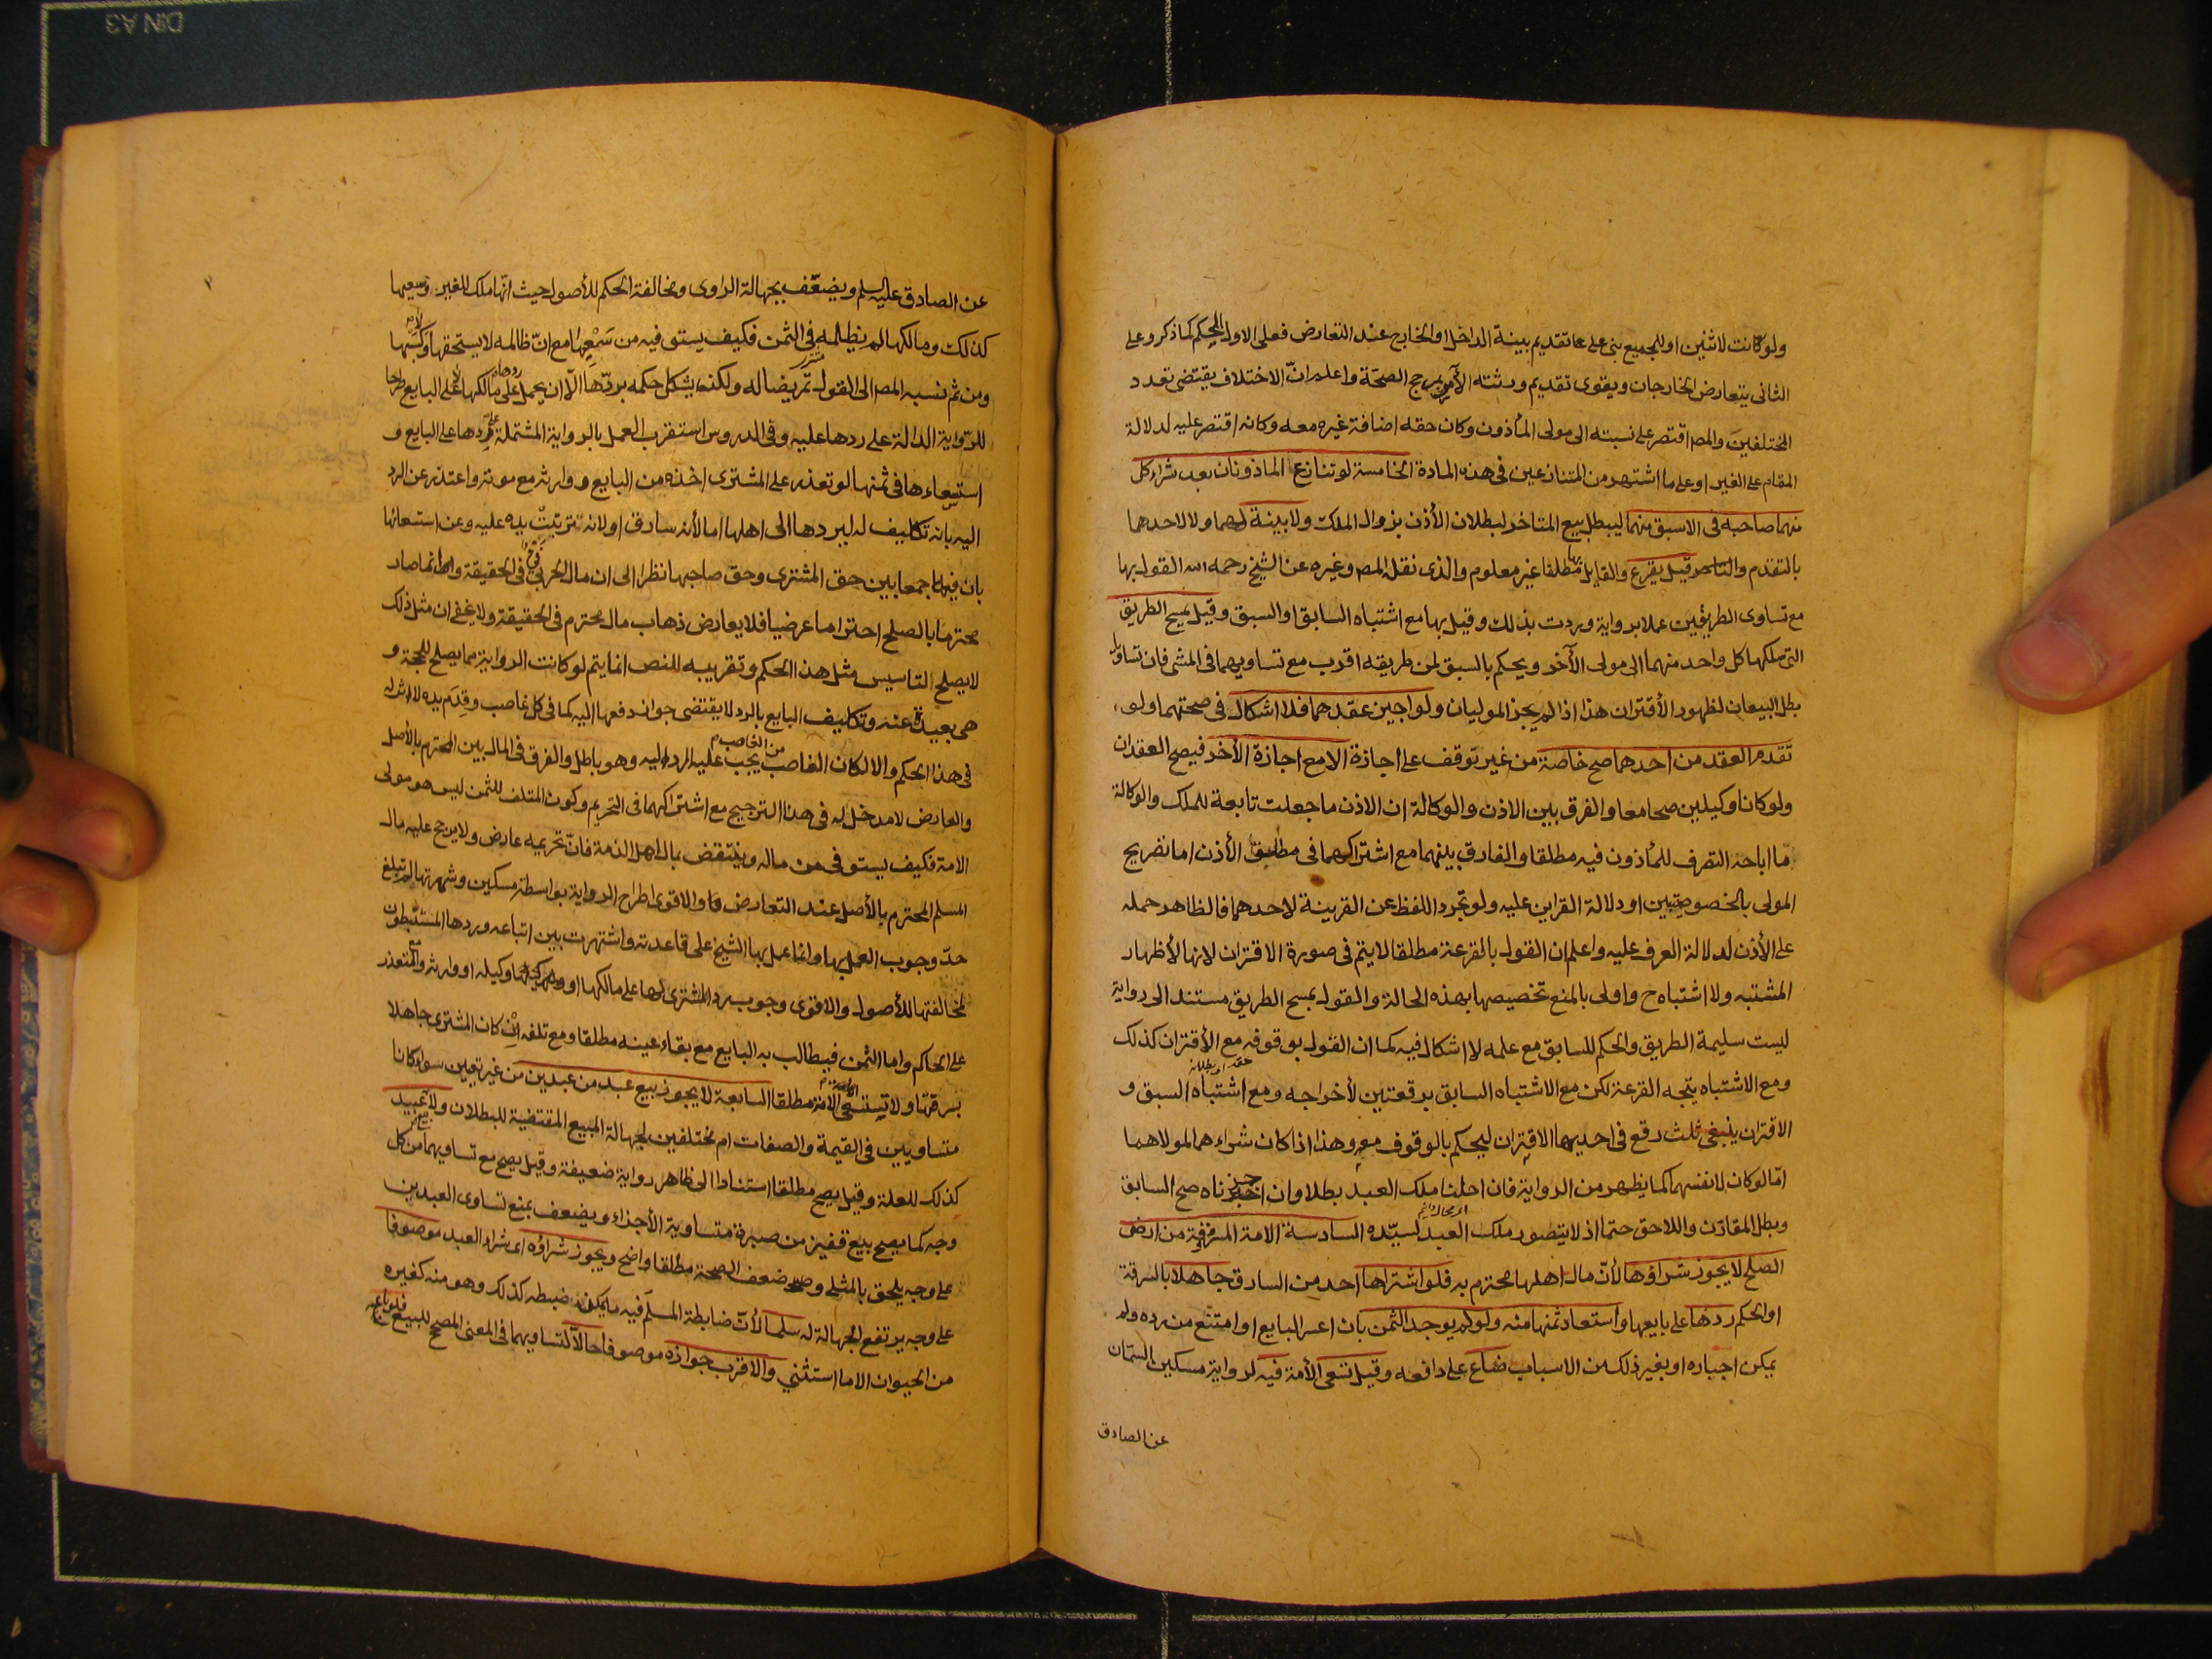 ولو كانت لاثنين او للجميع بنى على تقديم بينة الداخل او الخارج عند التعارض فعلى الاول الحكم كما ذكر وعلى
الثانى يتعارض الخارجان ويقوى تقديم ورثته الآمر بمرجح الصحة واعلم ان الاختلاف يقتضى تعدد
المختلفين والمص اقتصر على نسبته الى مولى المأذون وكان حقه اضافة غيره معه وكانه اقتصر عليه لدلالة
المقام على الغير او على ما اشتهر من المتنازعين فى هذه المادة الخامسة لو تنازع الماذونان بعد شراء كل
منهما صاحبه فى الاسبق منهما ليبطل بيع المتاخر لبطلان الأذن بزوال الملك ولا بينة لهما ولا لاحدهما
بالتقدم والتاخر قيل يقرع والقايل بها مطلقا غير معلوم والذى نقله المص وغيره عن الشيخ رحمه الله القول بها
مع تساوى الطريقين عملا برواية وردت بذلك وقيل بها مع اشتباه السابق او السبق وقيل يمسح الطريق
التى سلكها كل واحد منهما الى مولى الآخر ويحكم بالسبق لمن طريقه اقرب مع تساويهما فى المشى فان تساويا
بطل البيعان لظهور الأقتران هذا اذا لم يجز الموليان ولو اجيز عقدهما فلا اشكال فى صحتهما ولو
تقدم العقد من احدهما صح خاصة من غير توقف على اجازة الا مع اجازة الأخر فيصح العقدان
ولو كانا وكيلين صحا معا والفرق بين الاذن والوكالة ان الاذن ما جعلت تابعة للملك والوكالة
ما اباحت التصرف للمأذون فيه مطلقا والفارق بينهما مع اشتراكهما فى مطلق الأذن اما تصريح
المولى بالخصوصيتين او دلالة القراين عليه ولو تجرد اللفظ عن القرينة لاحدهما فالظاهر حمله
على الأذن لدلالة العرف عليه واعلم ان القول بالقرعة مطلقا لا يتم فى صورة الاقتران لانها لأظهار
المشتبه ولا اشتباه ح واولى بالمنع تخصيصها بهذه الحالة والقول بمسح الطريق مستند الى رواية
ليست سليمة الطريق والحكم للسابق مع علمه لا اشكال فيه كما ان القول بوقوفه مع الأقتران كذلك
ومع الاشتباه يتجه القرعة لكن مع الاشتباه السابق برقعتين لأخراجه ومع اشتباه السبق و
الاقتران ينبغى ثلث رقع فى احديها الاقتران ليحكم بالوقوف معه وهذا اذا كان شراءهما لمولاهما
امّا لو كان لانفسهما كما يظهر من الرواية فان احلنا ملك العبد بطلا وان اجزناه صح السابق
وبطل المقارن واللاحق حتما اذ لا يتصور ملك العبد لسيّده السادسة الامة المسروقة من ارض
الصلح لا يجوز شراؤها لأنّ مال اهلها محترم به فلو اشتراها احد من السارق جاهلا بالسرقة
او الحكم ردها على بايعها واستعاد ثمنها منه ولو لم يوجد الثمن بان اعسر البايع او امتنع من رده ولم
يمكن اجباره او بغير ذلك من الاسباب ضاع على دافعه وقيل تسعى الأمة فيه لرواية مسكين السمّان
عن الصادق
عن الصادق عليه السلم ويضعّف بجهالة الراوى ومخالفة الحكم للأصول حيث انها ملك للغير وسعيها
كذلك ومالكها لم يظلمه فى الثمن فكيف يستوفيه من سعيها مع انّ ظالمه لا يستحقها ولا كسبها
ومن ثم نسبه المص الى القول تمريضا له ولكنه يشكل حكمه بردّها الّا ان يحمل على ردها على مالكها لا على البايع طرحا
للرّواية الدالة على ردها عليه وفى الدروس استقرب العمل بالرواية المشتملة على ردها على البايع و
استسعاءها فى ثمنها لو تعذر على المشترى اخذه من البايع ووارثه مع موته واعتذر عن الرد
اليه بانه تكليف له ليردها الى اهلها اما لأنه سارق او لانه ترتبت يده عليه وعن استسعائها
بان فيه جمعا بين حق المشترى وحق صاحبها نظرا الى ان مال الحربى فئ فى الحقيقة وانما صار
محترما بالصلح احتراما عرضيا فلا يعارض ذهاب مال محترم فى الحقيقة ولا يخفى ان مثل ذلك
لا يصلح لتاسيس مثل هذا الحكم وتقريبه للنص انما يتم لو كانت الرواية مما يصلح للحجة و
هى بعيدة عنه وتكليف البايع بالرد لا يقتضى جواز دفعها اليه كما فى كل غاصب وقِدَم يده لا اثر له
فى هذا الحكم والا لكان الغاصب من الغاصب يجب عليه الرد اليه وهو باطل والفرق فى المال بين المحترم بالأصل
والعارض لا مدخل له فى هذا الترجيح مع اشتراكهما فى التحريم وكون المتلف للثمن ليس هو مولى
الامة فكيف يستوفى من ماله وينتقض بمال اهل الذمة فانّ تحريمه عارض ولا يرجح عليه مال
المسلم المحترم بالأصل عند التعارض والاقوى اطراح الرواية بواسطة مسكين وشهرتها لم تبلغ
حدّ وجوب العمل بها وانما عمل بها الشيخ على قاعدته واشتهرت بين اتباعه وردها المستنبطون
لمخالفتها للأصول والاقوى وجوب رد المشترى لها على مالكها او وكيله او وارثه ومع التعذر
على الحاكم واما الثمن فيطالب به البايع مع بقاء عينه مطلقا ومع تلفه ان كان المشترى جاهلا
بسرقتها ولا تستسعى الامة مطلقا السابعة لا يجوز بيع عبد من عبدين من غير تعيين سواء كانا
متساويين فى القيمة والصفات ام مختلفين لجهالة المبيع المقتضية للبطلان ولا بيع عبيد
كذلك للعلة وقيل يصح مطلقا استنادا الى ظاهر رواية ضعيفة وقيل يصح مع تساويهما من كل
وجه كما يصح بيع قفيز من صبرة متساوية الأجزاء ويضعف بمنع تساوى العبدين
على وجه يلحق بالمثلى وضعف الصحة مطلقا واضح ويجوز شراؤه اى شراء العبد موصوفا
على وجه يرتفع الجهالة له سلما لأنّ ضابطة المسلم فيه ما يمكن ضبطه كذلك وهو منه كغيره
من الحيوان الا ما استثنى والاقرب جوازه موصوفا حالا لتساويهما فى المعنى المصحح للبيع فلو باعه